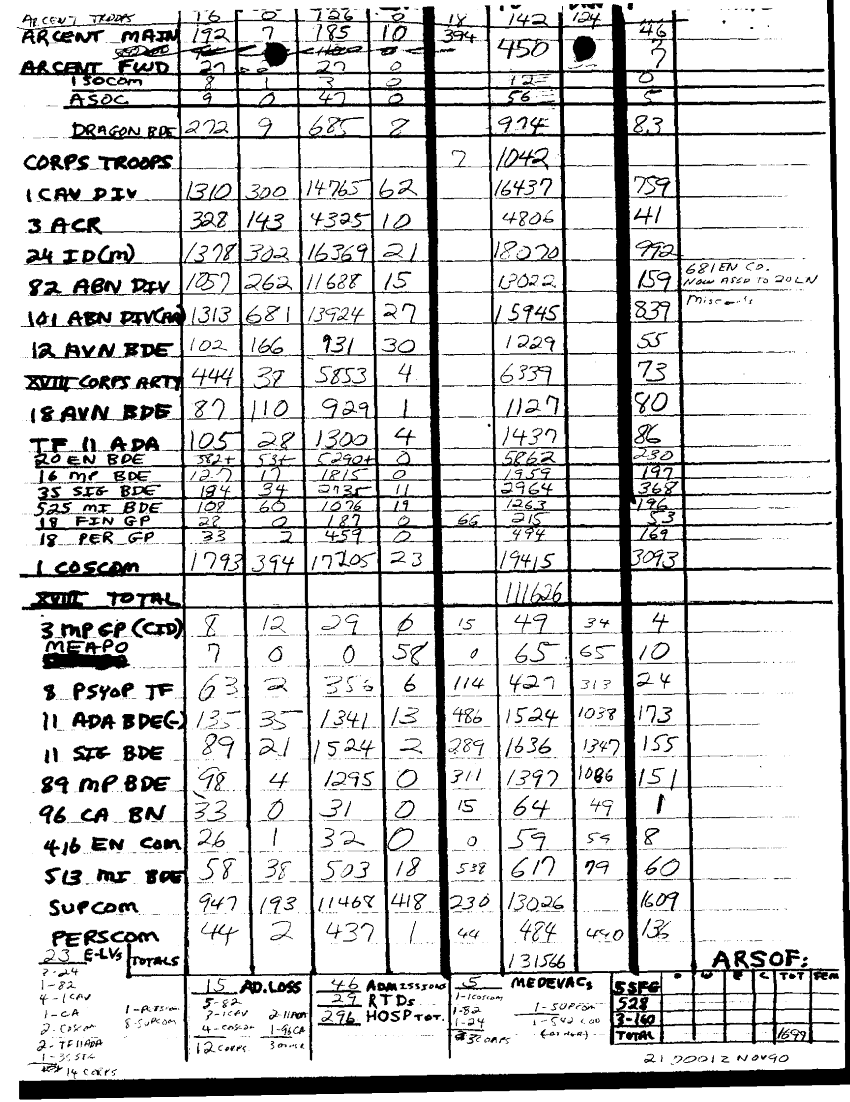 ARCENT TROOPS 16 0 126 0 18 142 124
ARCENT MAIN 192 7 185 10 394 450 46
ARCENT FWD 27 27 0 7
ISOCOM 8 1 3 0 12 0
ASOC 9 0 47 0 56 5
DRAGON BDE 272 9 685 8 974 83
CORPS TROOPS 7 1042
1 CAV DIV 1310 300 14765 62 16437 759
3 ACR 328 143 4325 10 4806 41
24 ID(M) 1378 302 16369 21 18070 992
82 ABN DIV 1057 262 11688 15 13022 159 681 EN CO.
NOW ASGD TO 20 EN
101 ABN DIV(AA) 1313 681 13924 27 15945 839
12 AVN BDE 102 166 931 30 1229 55
XVIII CORPS ARTY 444 38 5853 4 6339 73
18 AVN BDE 87 110 929 1 1127 80
TF 11 ADA 105 28 1300 4 1437 86
20 EN BDE 582+ 53+ 5290+ 0 5862 230
16 MP BDE 127 17 1815 0 1959 197
35 SIG BDE 184 34 2735 11 2964 368
525 MI BDE 108 60 1076 19 1263 196
18 FIN GP 28 0 187 0 66 215 53
18 PER GP 33 2 459 0 494 169
1 COSCOM 1793 394 17205 23 19415 3093
XVIII TOTAL 111626
3 MP GP (CID) 8 12 29 0 15 49 34 4
MEAPO 7 0 0 58 0 65 65 10
8 PSYOP TF 63 2 356 6 114 427 313 24
11 ADA BDE(-) 135 35 1341 13 486 1524 1038 173
11 SIG BDE 89 21 1524 2 289 1636 1347 155
89 MP BDE 98 4 1295 0 311 1397 1086 151
96 CA BN 33 0 31 0 15 64 49 1
416 EN COM 26 1 32 0 0 59 59 8
513 MI BDE 58 38 503 18 538 617 79 60
SUPCOM 947 193 11468 418 230 13026 1609
PERSCOM 44 2 437 1 44 484 440 136
23 E-LVS TOTALS 131566 ARSOF:
2-24 15 AD.LOSS 46 ADMISSIONS 5 MEDEVACS O W E C TOT FEM
1-82 5-82 29 RTDs 1-1COSCOM 5SFG
4-1CAV 3-1CAV 2-11ADA 296 HOSP TOT. 1-82 1-SUPCOM 528
1-CA 1-PERSCOM 4-COSCOM 1-96CA 1-24 3-160
2-COSCOM 8-SUPCOM 12 CORPS 3 CORPS TOTAL 1699
2-TF11ADA
1-35 SIG
14 CORPS
210001Z NOV90